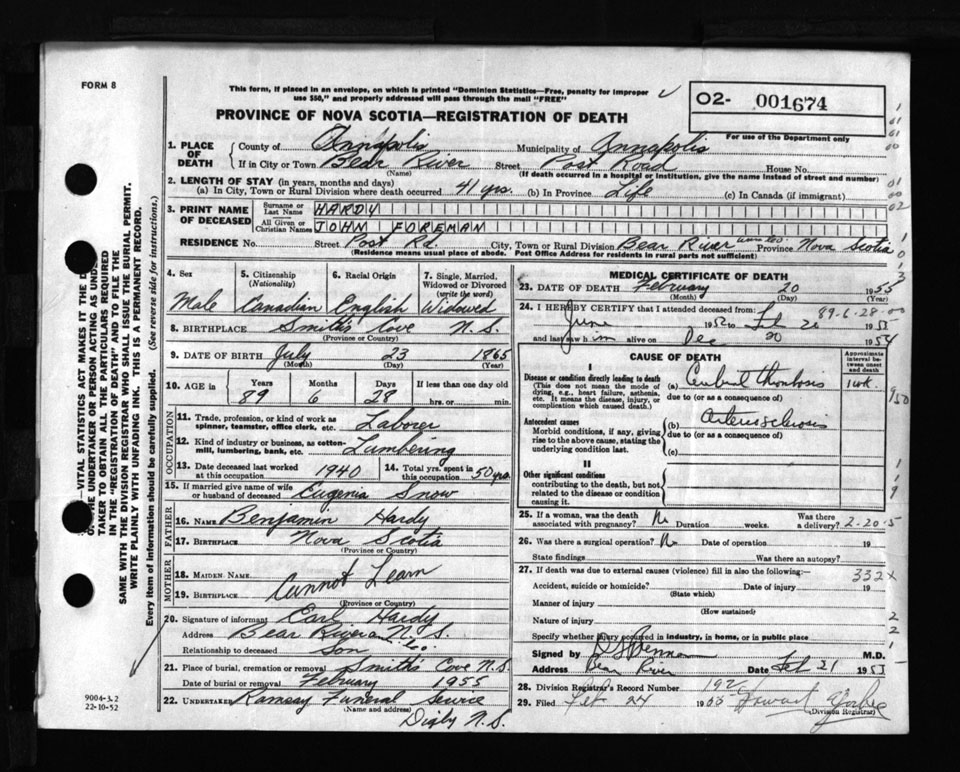 FORM 8
This form, if placed in an envelope, on which is printed "Dominion Statistics—Free, penalty for improper
use $50," and properly addressed will pass through the mail "FREE"
O2- 001674
PROVINCE OF NOVA SCOTIA—REGISTRATION OF DEATH
For use of the Department only
1. PLACE OF DEATH
County of Annapolis Municipality of Annapolis
If in City or Town Bear River Street Post Road House No.
(Name) (If death occurred in a hospital or institution, give name instead of street and number)
2. LENGTH OF STAY (in years, months and days)
(a) In City, Town or Rural Division where death occurred 41 yrs. (b) In Province Life (c) In Canada (if immigrant)
3. PRINT NAME OF DECEASED
Surname or Last Name HARDY
All Given or Christian Names JOHN FOREMAN
RESIDENCE No. Street Post Rd. City, Town or Rural Division Bear River Province Nova Scotia
(Residence means usual place of abode. Post Office Address for residents in rural parts not sufficient)
4. Sex Male
5. Citizenship (Nationality) Canadian
6. Racial Origin English
7. Single, Married, Widowed or Divorced (write the word) Widowed
8. BIRTHPLACE Smith's Cove N.S.
(Province or Country)
9. DATE OF BIRTH July 23 1865
(Month) (Day) (Year)
10. AGE in Years 89 Months 6 Days 28 If less than one day old
hrs. or min.
OCCUPATION
11. Trade, profession, or kind of work as spinner, teamster, office clerk, etc. Laborer
12. Kind of industry or business, as cotten-mill, lumbering, bank, etc. Lumbering
13. Date deceased last worked at this occupation 1940
14. Total yrs. spent in this occupation 50 yrs.
15. If married give name of wife or husband of deceased Eugenia Snow
FATHER
16. NAME Benjamin Hardy
17. BIRTHPLACE Nova Scotia
(Province or Country)
MOTHER
18. MAIDEN NAME
19. BIRTHPLACE Cannot Learn
(Province or Country)
20. Signature of informant Earl Hardy
Address Bear River N.S.
Relationship to deceased Son
21. Place of burial, cremation or removal Smith's Cove N.S.
Date of burial or removal February 1955
22. UNDERTAKER Ramsay Funeral Service
(Name and address) Digby N.S.
MEDICAL CERTIFICATE OF DEATH
23. DATE OF DEATH February 20 1955
(Month) (Day) (Year)
89-6-28-00
24. I HEREBY CERTIFY that I attended deceased from:
June 1952 to Feb 20
and last saw him alive on Dec 20 1954
CAUSE OF DEATH
Approximate interval between onset and death
I
Disease or condition directly leading to death
(This does not mean the mode of dying, e.g., heart failure, asthenia, etc. It means the disease, injury, or complication which caused death.)
(a) Cerebral thrombosis 1 wk
due to (or as a consequence of)
Antecedent causes
Morbid conditions, if any, giving rise to the above cause, stating the underlying condition last.
(b) Arteriosclerosis
due to (or as a consequence of)
(c)
II
Other significant conditions
contributing to the death, but not related to the disease or condition causing it.
25. If a woman, was the death associated with pregnancy? No Duration weeks. Was there a delivery? 2-20-5
26. Was there a surgical operation? No Date of operation 19
State findings Was there an autopsy?
27. If death was due to external causes (violence) fill in also the following: 332x
Accident, suicide or homicide? Date of injury 19
(State which)
Manner of injury
(How sustained)
Nature of injury
Specify whether injury occurred in industry, in home, or in public place
Signed by M.D.
Address Bear River Date Feb 21
28. Division Registrar's Record Number
29. Filed Feb 24
(Division Registrar)
VITAL STATISTICS ACT MAKES IT THE
THE UNDERTAKER OR PERSON ACTING AS UNDER-
TAKER TO OBTAIN ALL THE PARTICULARS REQUIRED
IN THE "REGISTRATION OF DEATH" AND TO FILE THE
SAME WITH THE DIVISION REGISTRAR WHO SHALL ISSUE THE BURIAL PERMIT.
WRITE PLAINLY WITH UNFADING INK. THIS IS A PERMANENT RECORD.
Every item of information should be carefully supplied. (See reverse side for instructions.)
9004-3.2
22-10-52